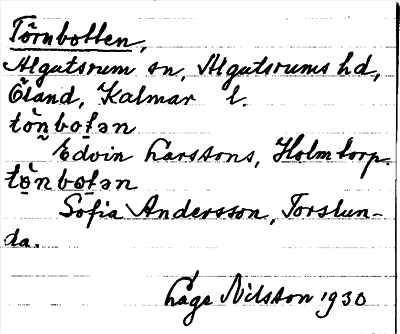 Törnbotten,
Algutsrum sn, Algutsrums hd,
Öland, Kalmar l.
tö̀n̰botən
Edvin Larssons, Holmtorp.
tö̀nbotən
Sofia Andersson, Torslun-
da.
Låge Nilsson 1930